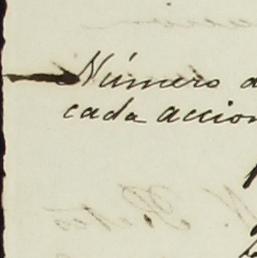 Número d
cada accion